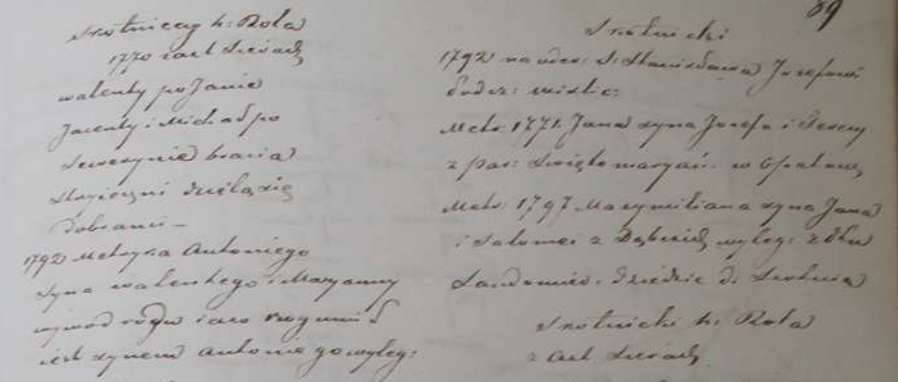 Skotniccy h: Rola
1770 z akt Sieradz
Walenty po Janie
Jacenty i Michał po
Sewerynie bracia
stryieczni dzielą się
Dobrami –
1792 Metryka Antoniego
syna Walentego i Maryanny
wywód rodu iako Zygmunt
iest synem Antoniego wyleg:
89
Skotnicki
1792 na order S: Stanisława Jozefowi
Sądz: wislic:
Metr: 1771 Jana syna Jozefa i Teresy
z par: Święto maryań: w Opatowie
Metr: 1797 Maxymiliana syna Jana
i Salomei z Dąbskich wyleg: z
Sandomirs: dziedzic d: Skotnia
Skotnicki h: Rola
z akt Sieradz